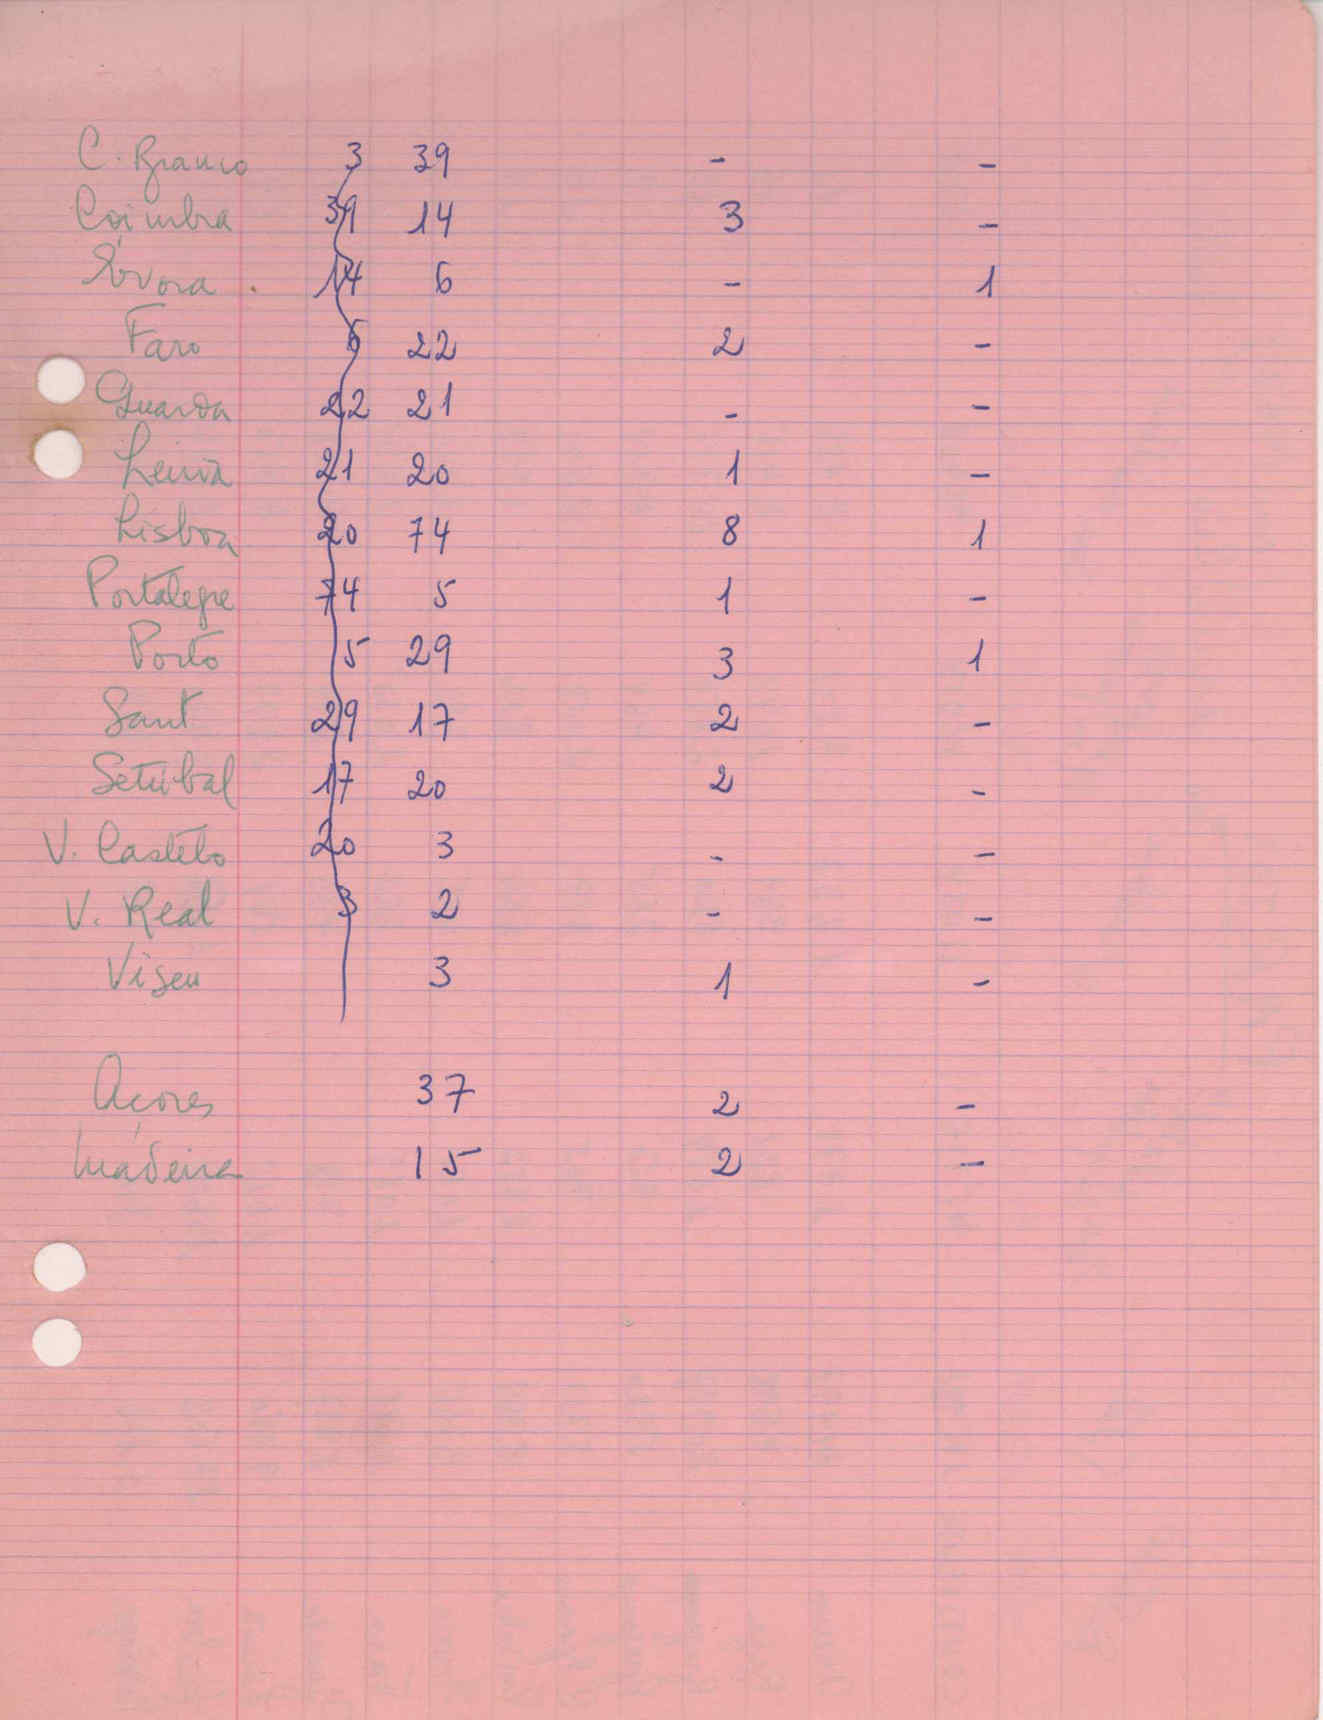 C. Branco 3 39 - -
Coimbra 39 14 3 -
Évora 14 6 - 1
Faro 6 22 2 -
Guarda 22 21 - -
Leiria 21 20 1 -
Lisboa 20 74 8 1
Portalegre 74 5 1 -
Porto 5 29 3 1
Sant 29 17 2 -
Setúbal 17 20 2 -
V. Castelo 20 3 - -
V. Real 3 2 - -
Viseu 3 1 -
Açores 37 2 -
Madeira 15 2 -